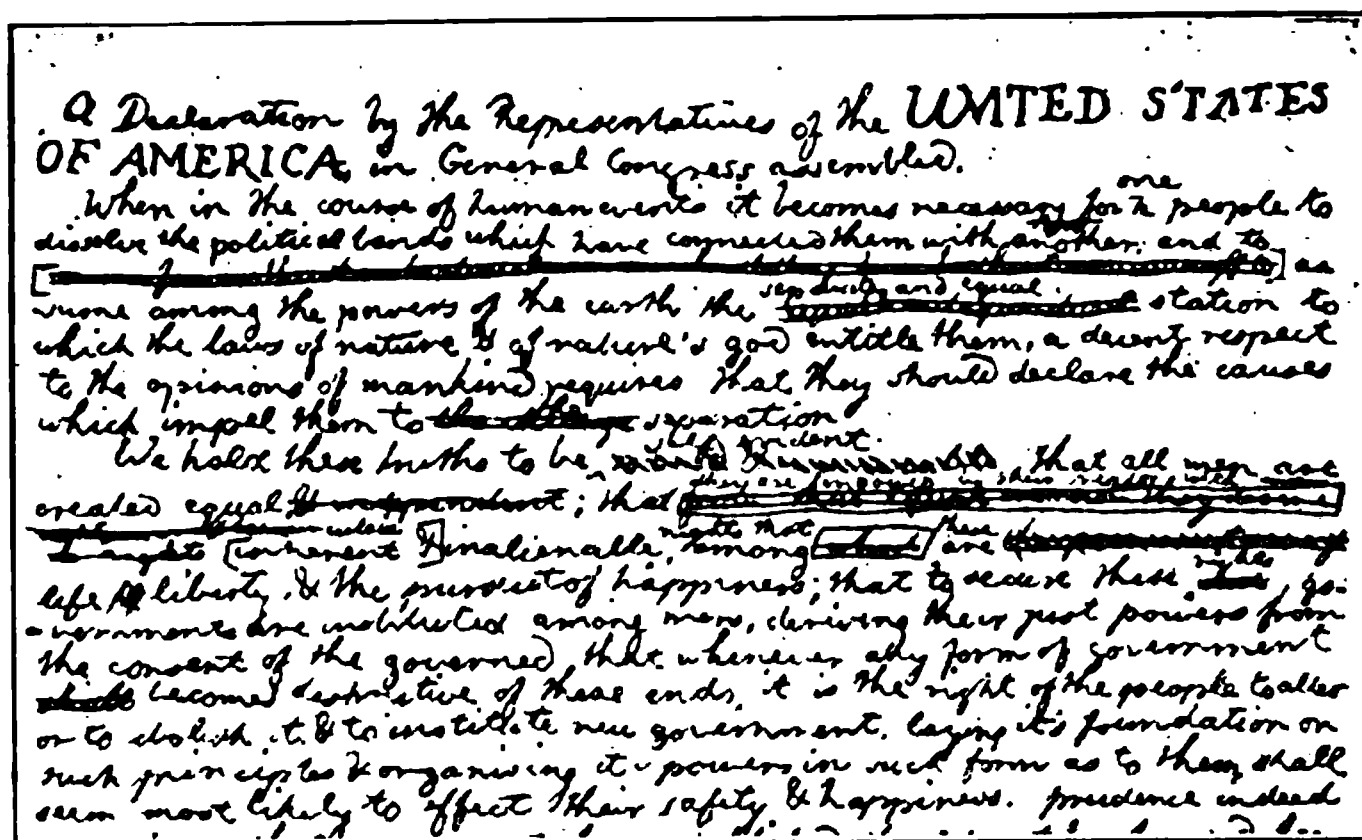 A Declaration by the Representatives of the UNITED STATES
OF AMERICA, in General Congress assembled.
When in the course of human events it becomes necessary for one people to
dissolve the political bands which have connected them with another, and to
as
sume among the powers of the earth the separate and equal station to
which the laws of nature & of nature's god entitle them, a decent respect
to the opinions of mankind requires that they should declare the causes
which impel them to the separation
We hold these truths to be self evident. that all men are
created equal & independent; that they are endowed by their creator with
[inherent & inalienable rights that among these are
life & liberty, & the pursuit of happiness; that to secure these rights, go-
vernments are instituted among men, deriving their just powers from
the consent of the governed, that whenever any form of government
shall becomes destructive of these ends, it is the right of the people to alter
or to abolish it, & to institute new government, laying it's foundation on
such principles & organising it's powers in such form as to them shall
seem most likely to effect their safety & happiness. prudence indeed